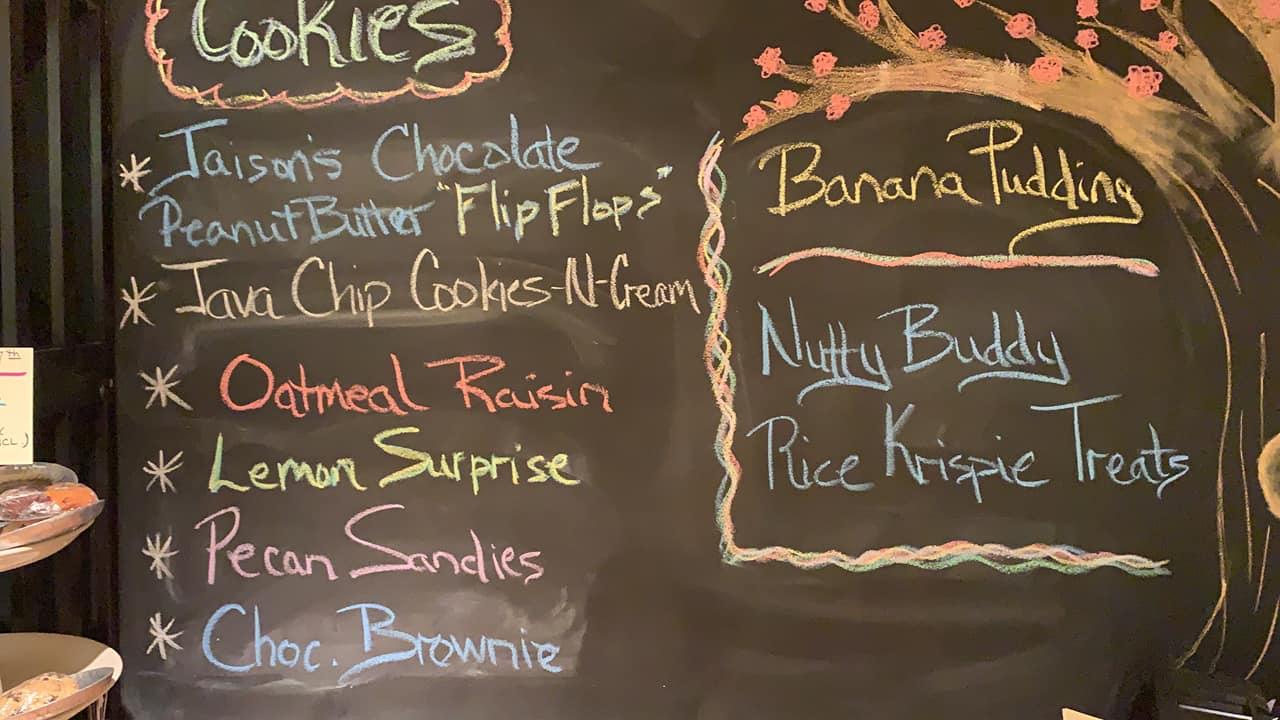 Cookies
* Jaison's Chocolate
Peanut Butter "Flip Flops"
* Java Chip Cookies-N-Cream
* Oatmeal Raisin
* Lemon Surprise
* Pecan Sandies
* Choc. Brownie
Banana Pudding
Nutty Buddy
Rice Krispie Treats
th
CL.)